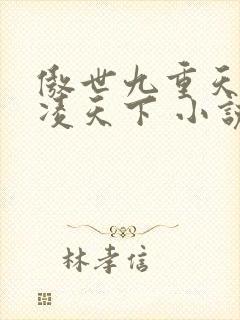 傲世九重天
凌天下 小說
林孝信